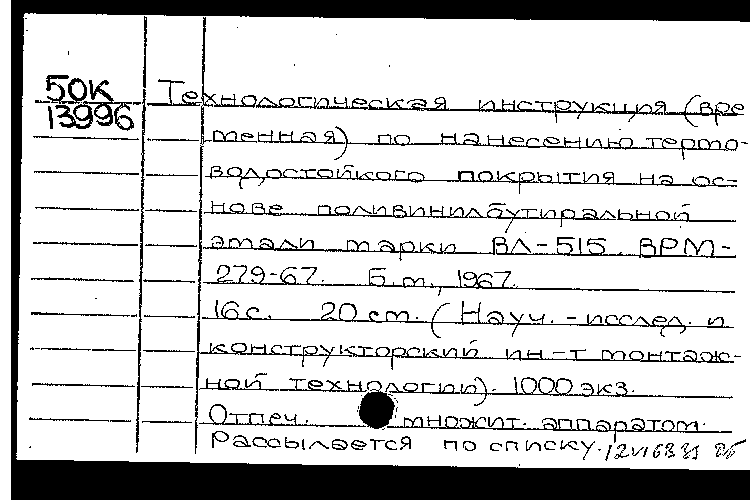 50К
13996
Технологическая инструкция (вре
менная) по нанесению термо-
водостойкого покрытия на ос-
нове поливинилбутиральной
эмали марки ВЛ-515 ВРМ-
279-67. Б.м., 1967.
16 с. 20 см. (Науч.-исслед. и
конструкторский ин-т монтаж-
ной технологии). 1000 экз.
Отпеч. множит. аппаратом.
Рассылается по списку.